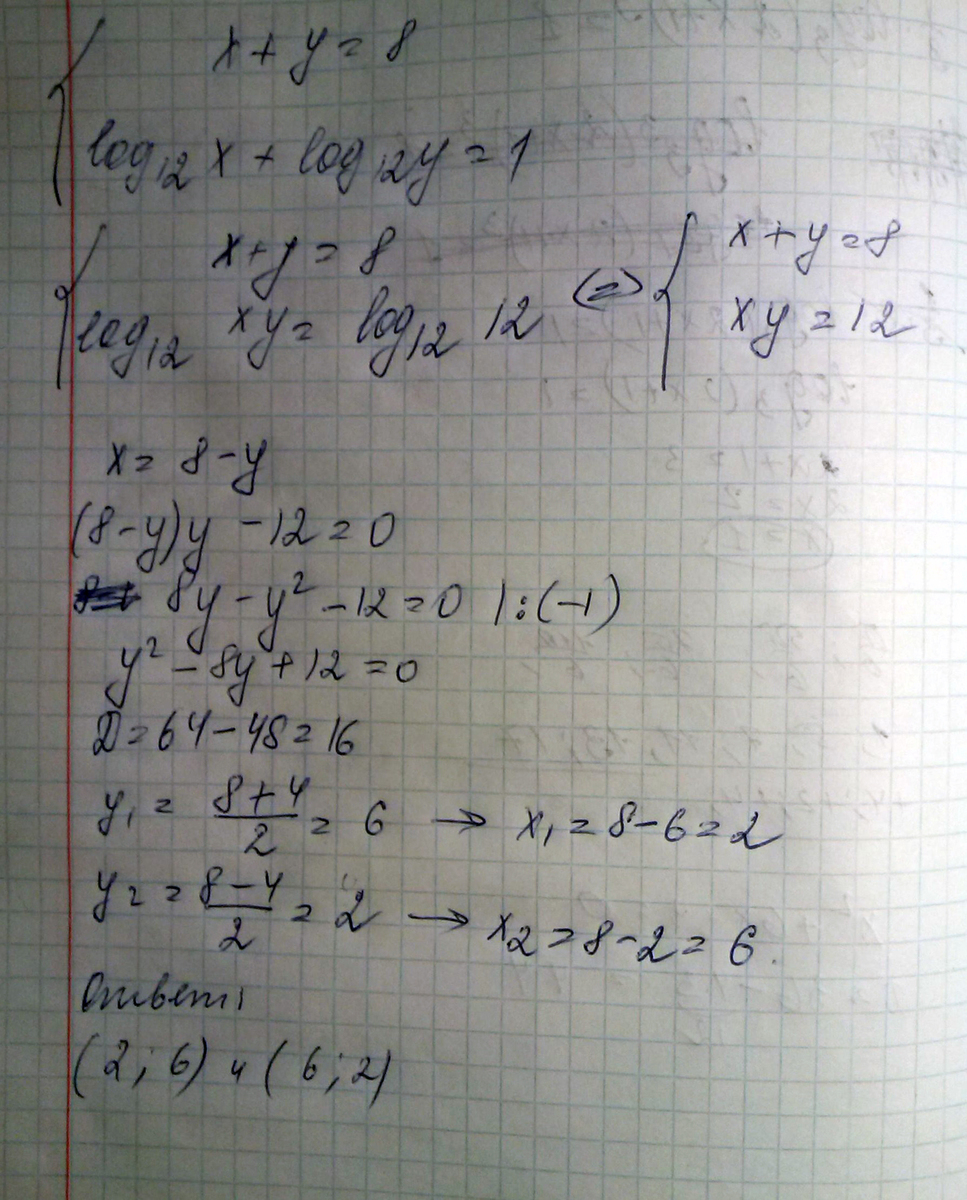 x + y = 8
log₁₂ x + log₁₂ y = 1
x + y = 8
log₁₂ xy = log₁₂ 12 (=) x + y = 8
xy = 12
x = 8 - y
(8 - y) y - 12 = 0
8y - y² - 12 = 0 | : (-1)
y² - 8y + 12 = 0
D = 64 - 48 = 16
y₁ = (8 + 4)/2 = 6 → x₁ = 8 - 6 = 2
y₂ = (8 - 4)/2 = 2 → x₂ = 8 - 2 = 6.
Ответ:
(2; 6) и (6; 2)